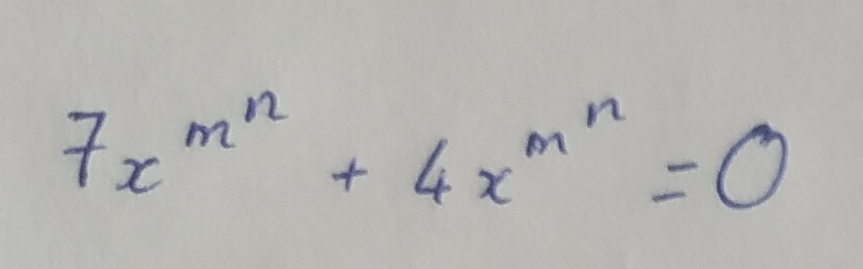 7x^{m^n} + 4x^{m^n} = 0